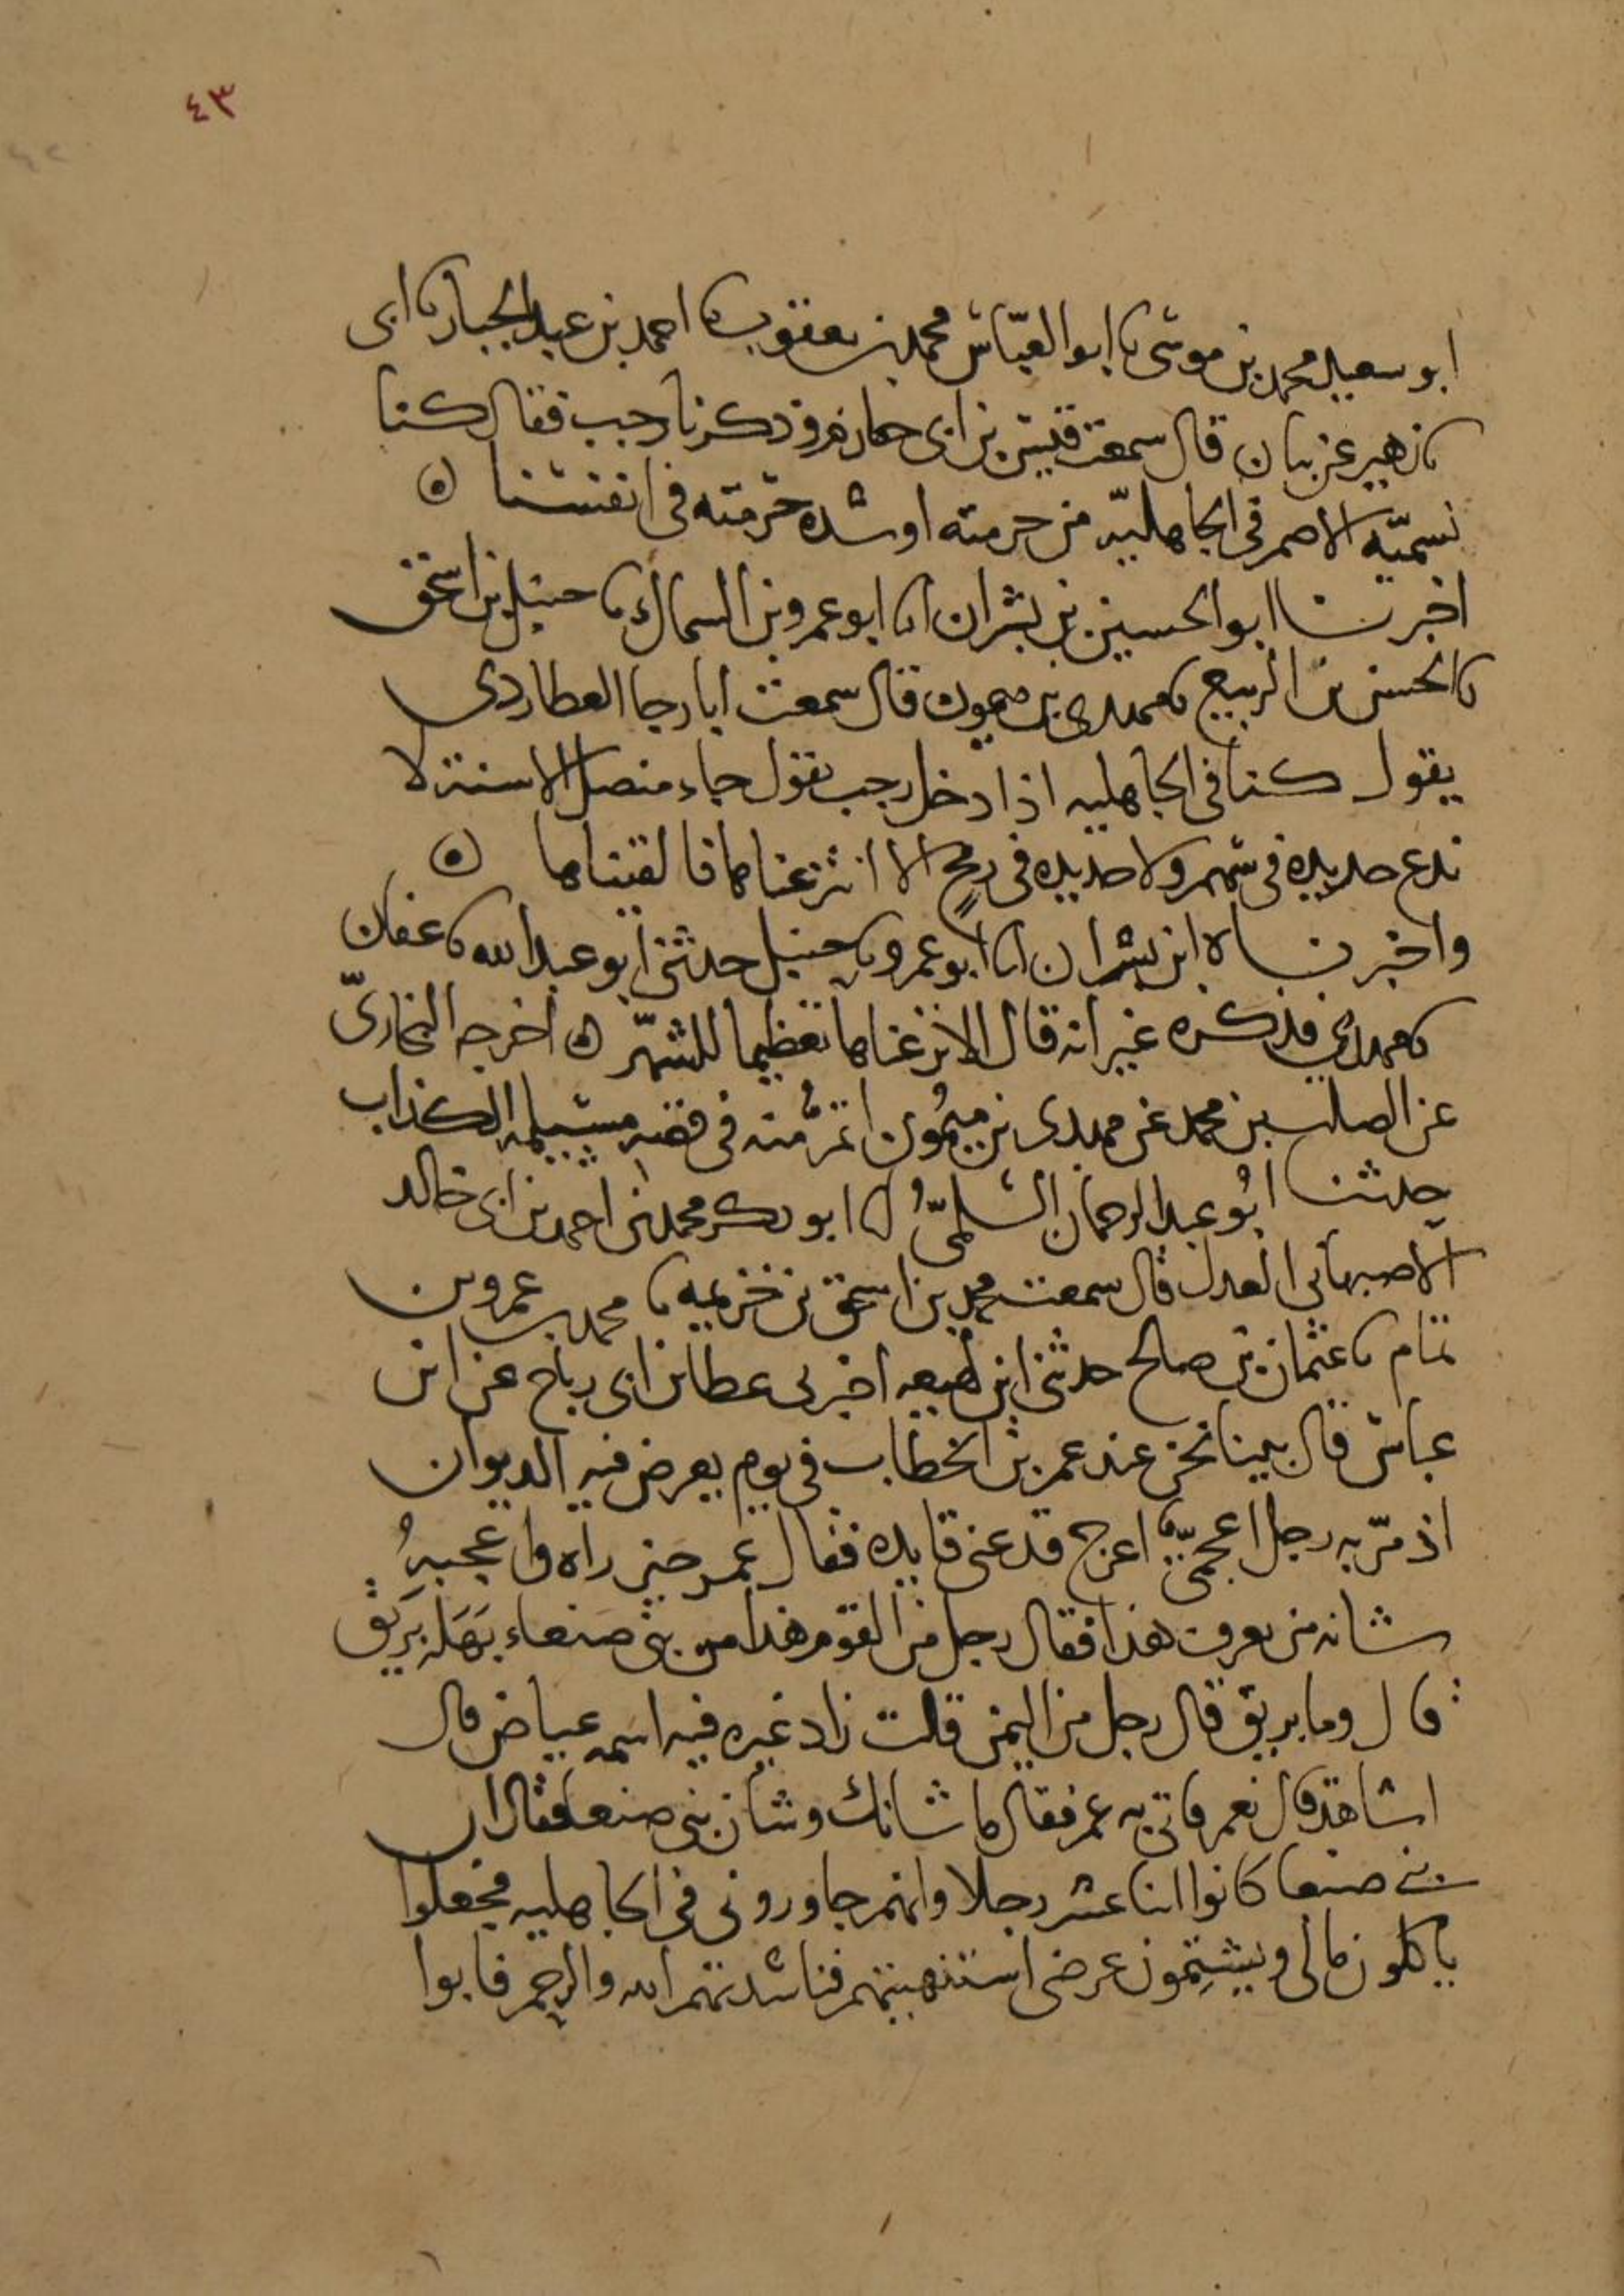 ٤٣
ابو سعيد محمد بن موسى نا ابو العباس محمد بن يعقوب نا احمد بن عبد الجبار نا ابى
نا زهير عن بيان قال سمعت قيس بن ابى حازم وذكرنا رجب فقال كنا
نسميه الاصم فى الجاهليه من حرمته او شده حرمته فى انفسنا ۞
اخبرنا ابو الحسين بن بشران انا ابو عمرو بن السماك نا حنبل بن اسحق
نا الحسن بن الربيع نا مهدى بن ميمون قال سمعت ابا رجا العطاردى
يقول كنا فى الجاهليه اذا دخل رجب نقول جاء منصل الاسنة لا
ندع حديده فى سهم ولا حديده فى رمح الا انتزعناها فالقيناها ۞
واخبرناه ابن بشران انا ابو عمرو نا حنبل حدثنى ابو عبد الله نا عفان
نا مهدى فذكره غير انه قال الا نزعناها تعظيما للشهر ۞ اخرجه البخارىّ
عن الصلت بن محمد عن مهدى بن ميمون اتم منه فى قصه مسيلمه الكذاب
حدثنا ابو عبد الرحمان السلمىُّ انا ابو بكر محمد بن احمد بن ابى خالد
الاصبهانى العدل قال سمعت محمد بن اسحق بن خزيمه نا محمد بن عمرو بن
تمام نا عثمان بن صالح حدثنى ابن لهيعه اخبرنى عطا بن ابى رباح عن ابن
عباس قال بينا نحن عند عمر بن الخطاب فى يوم يعرض فيه الديوان
اذ مرّ به رجل اعجمىّ اعرج قد عنى قايده فقال عمر حين راه واعجبهُ
شانه من يعرف هذا فقال رجل من القوم هذا من بنى صنعاء بَهَلَه بريق
قال وما بريق قال رجل من اليمن قلت زاد غيره فيه اسمه عياض قال
اشاهد قال نعم فاتى به عمر فقال ما شانك وشان بنى صنعا فقال ان
بنى صنعا كانوا اثنا عشر رجلا وانهم جاورونى فى الجاهليه فجعلوا
ياكلون مالى ويشتمون عرضى استنهيتهم فناشدتهم الله والرحم فابوا